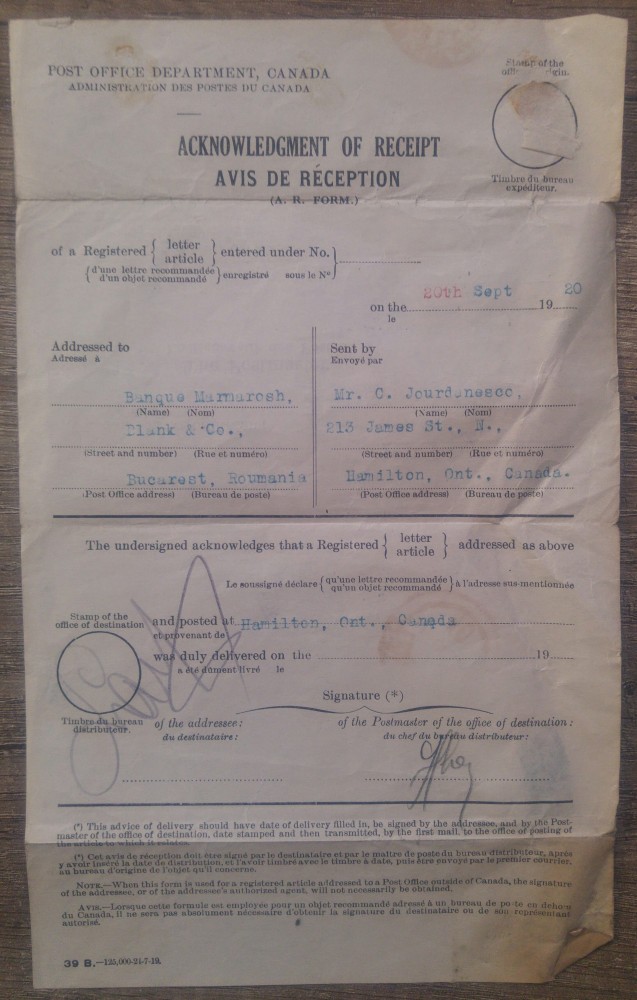 POST OFFICE DEPARTMENT, CANADA
ADMINISTRATION DES POSTES DU CANADA
Stamp of the
gin.
ACKNOWLEDGMENT OF RECEIPT
AVIS DE RÉCEPTION
(A. R. FORM.)
Timbre du bureau
expéditeur.
of a Registered { letter article } entered under No.
{ d'une lettre recommandée d'un objet recommandé } enregistré sous le No
on the 20th Sept 19 20
le
Addressed to
Adressé à
Banque Marmarosh,
(Name) (Nom)
Blank & Co.,
(Street and number) (Rue et numéro)
Bucarest, Roumania
(Post Office address) (Bureau de poste)
Sent by
Envoyé par
Mr. C. Jourdanesco,
(Name) (Nom)
213 James St., N.,
(Street and number) (Rue et numéro)
Hamilton, Ont., Canada.
(Post Office address) (Bureau de poste)
The undersigned acknowledges that a Registered { letter article } addressed as above
Le soussigné déclare { qu'une lettre recommandée qu'un objet recommandé } à l'adresse sus-mentionnée
Stamp of the
office of destination
and posted at Hamilton, Ont., Canada
et provenant de
was duly delivered on the 19
a été dûment livré le
Signature (*)
Timbre du bureau
distributeur.
of the addressee:
du destinataire:
of the Postmaster of the office of destination:
du chef du bureau distributeur:
(*) This advice of delivery should have date of delivery filled in, be signed by the addressee, and by the Post-
master of the office of destination, date stamped and then transmitted, by the first mail, to the office of posting of
the article to which it relates.
(*) Cet avis de réception doit être signé par le destinataire et par le maître de poste du bureau distributeur, après
y avoir inséré la date de distribution, et l'avoir timbré avec le timbre à date, puis être envoyé par le premier courrier,
au bureau d'origine de l'objet qu'il concerne.
NOTE.—When this form is used for a registered article addressed to a Post Office outside of Canada, the signature
of the addressee, or of the addressee's authorized agent, will not necessarily be obtained.
AVIS.—Lorsque cette formule est employée pour un objet recommandé adressé à un bureau de poste en dehors
du Canada, il ne sera pas absolument nécessaire d'obtenir la signature du destinataire ou de son représentant
autorisé.
39 B.—125,000-21-7-19.